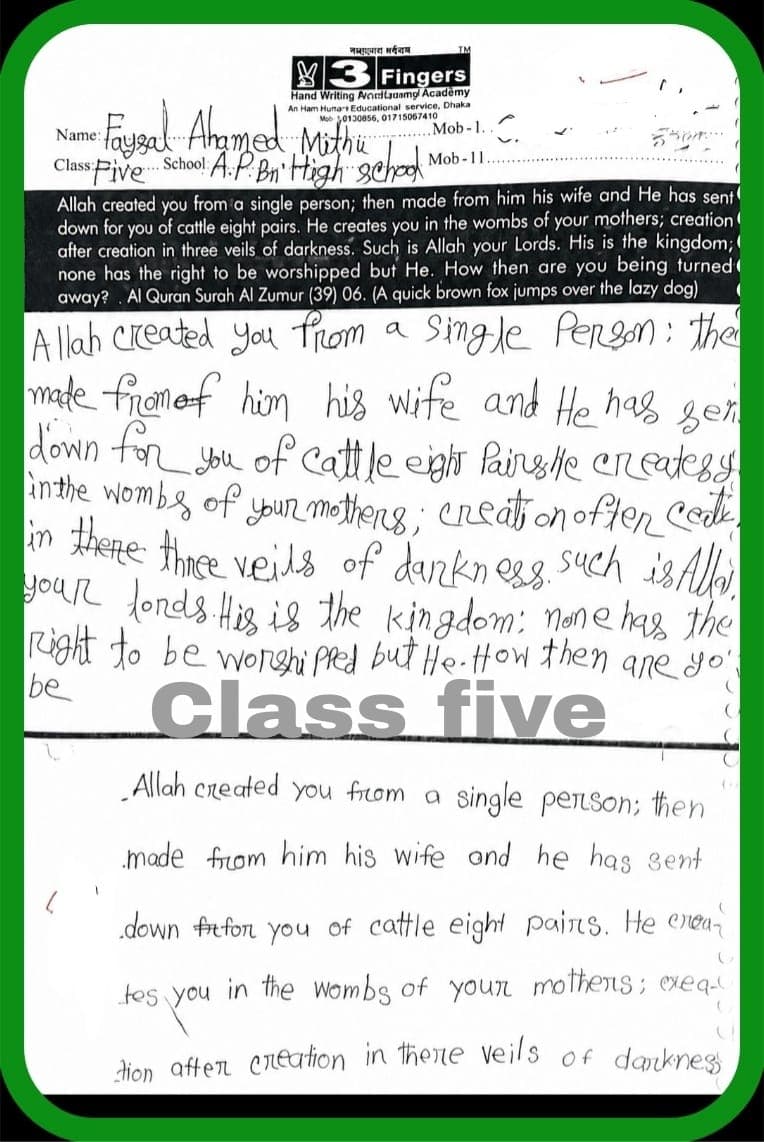 3 Fingers TM
Hand Writing Academy
Educational service, Dhaka
01715067410
Name: Faysal Ahamed Mithu Mob-1.
Class: Five School: A.P.Bn' High school Mob-11
Allah created you from a single person; then made from him his wife and He has sent
down for you of cattle eight pairs. He creates you in the wombs of your mothers; creation
after creation in three veils of darkness. Such is Allah your Lords. His is the kingdom;
none has the right to be worshipped but He. How then are you being turned
away? . Al Quran Surah Al Zumur (39) 06. (A quick brown fox jumps over the lazy dog)
Allah created you from a single Person: the
made from of him his wife and He has sen
down for you of cattle eight Pairs He creates y
in the wombs of your mothers; creation often
in there three veils of darkness. such is Alla
your lords. His is the kingdom: none has the
Right to be worshipped but He. How then are yo
be
Class five
Allah created you from a single person; then
made from him his wife and he has sent
down for you of cattle eight pairs. He crea-
tes you in the wombs of your mothers; crea-
tion after creation in there veils of darkness